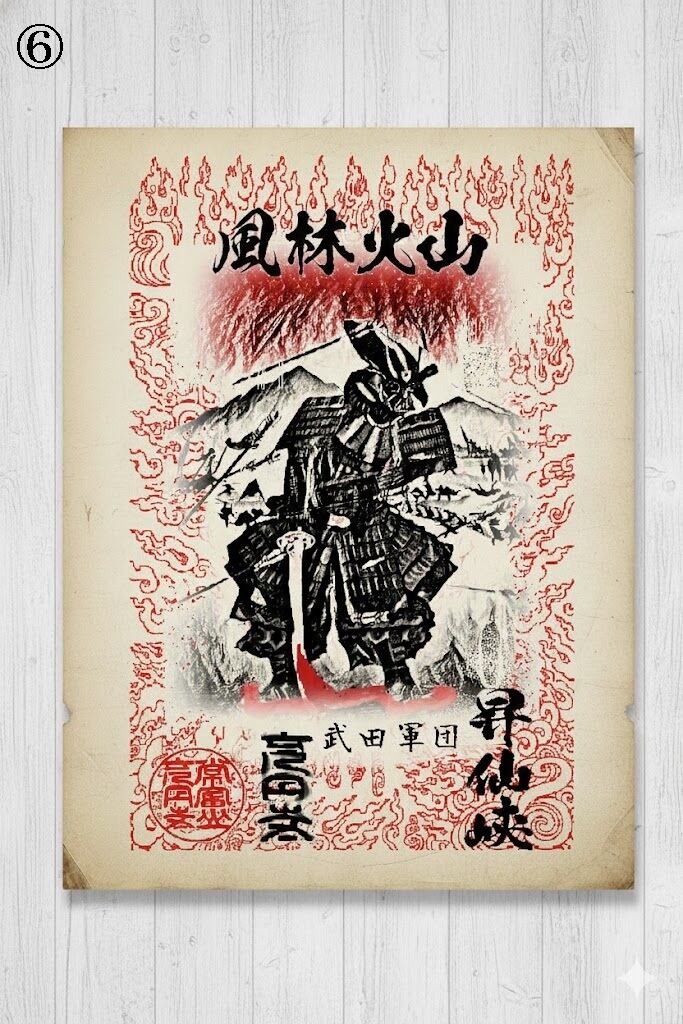 ⑥
風林火山
武田軍団
昇仙峡